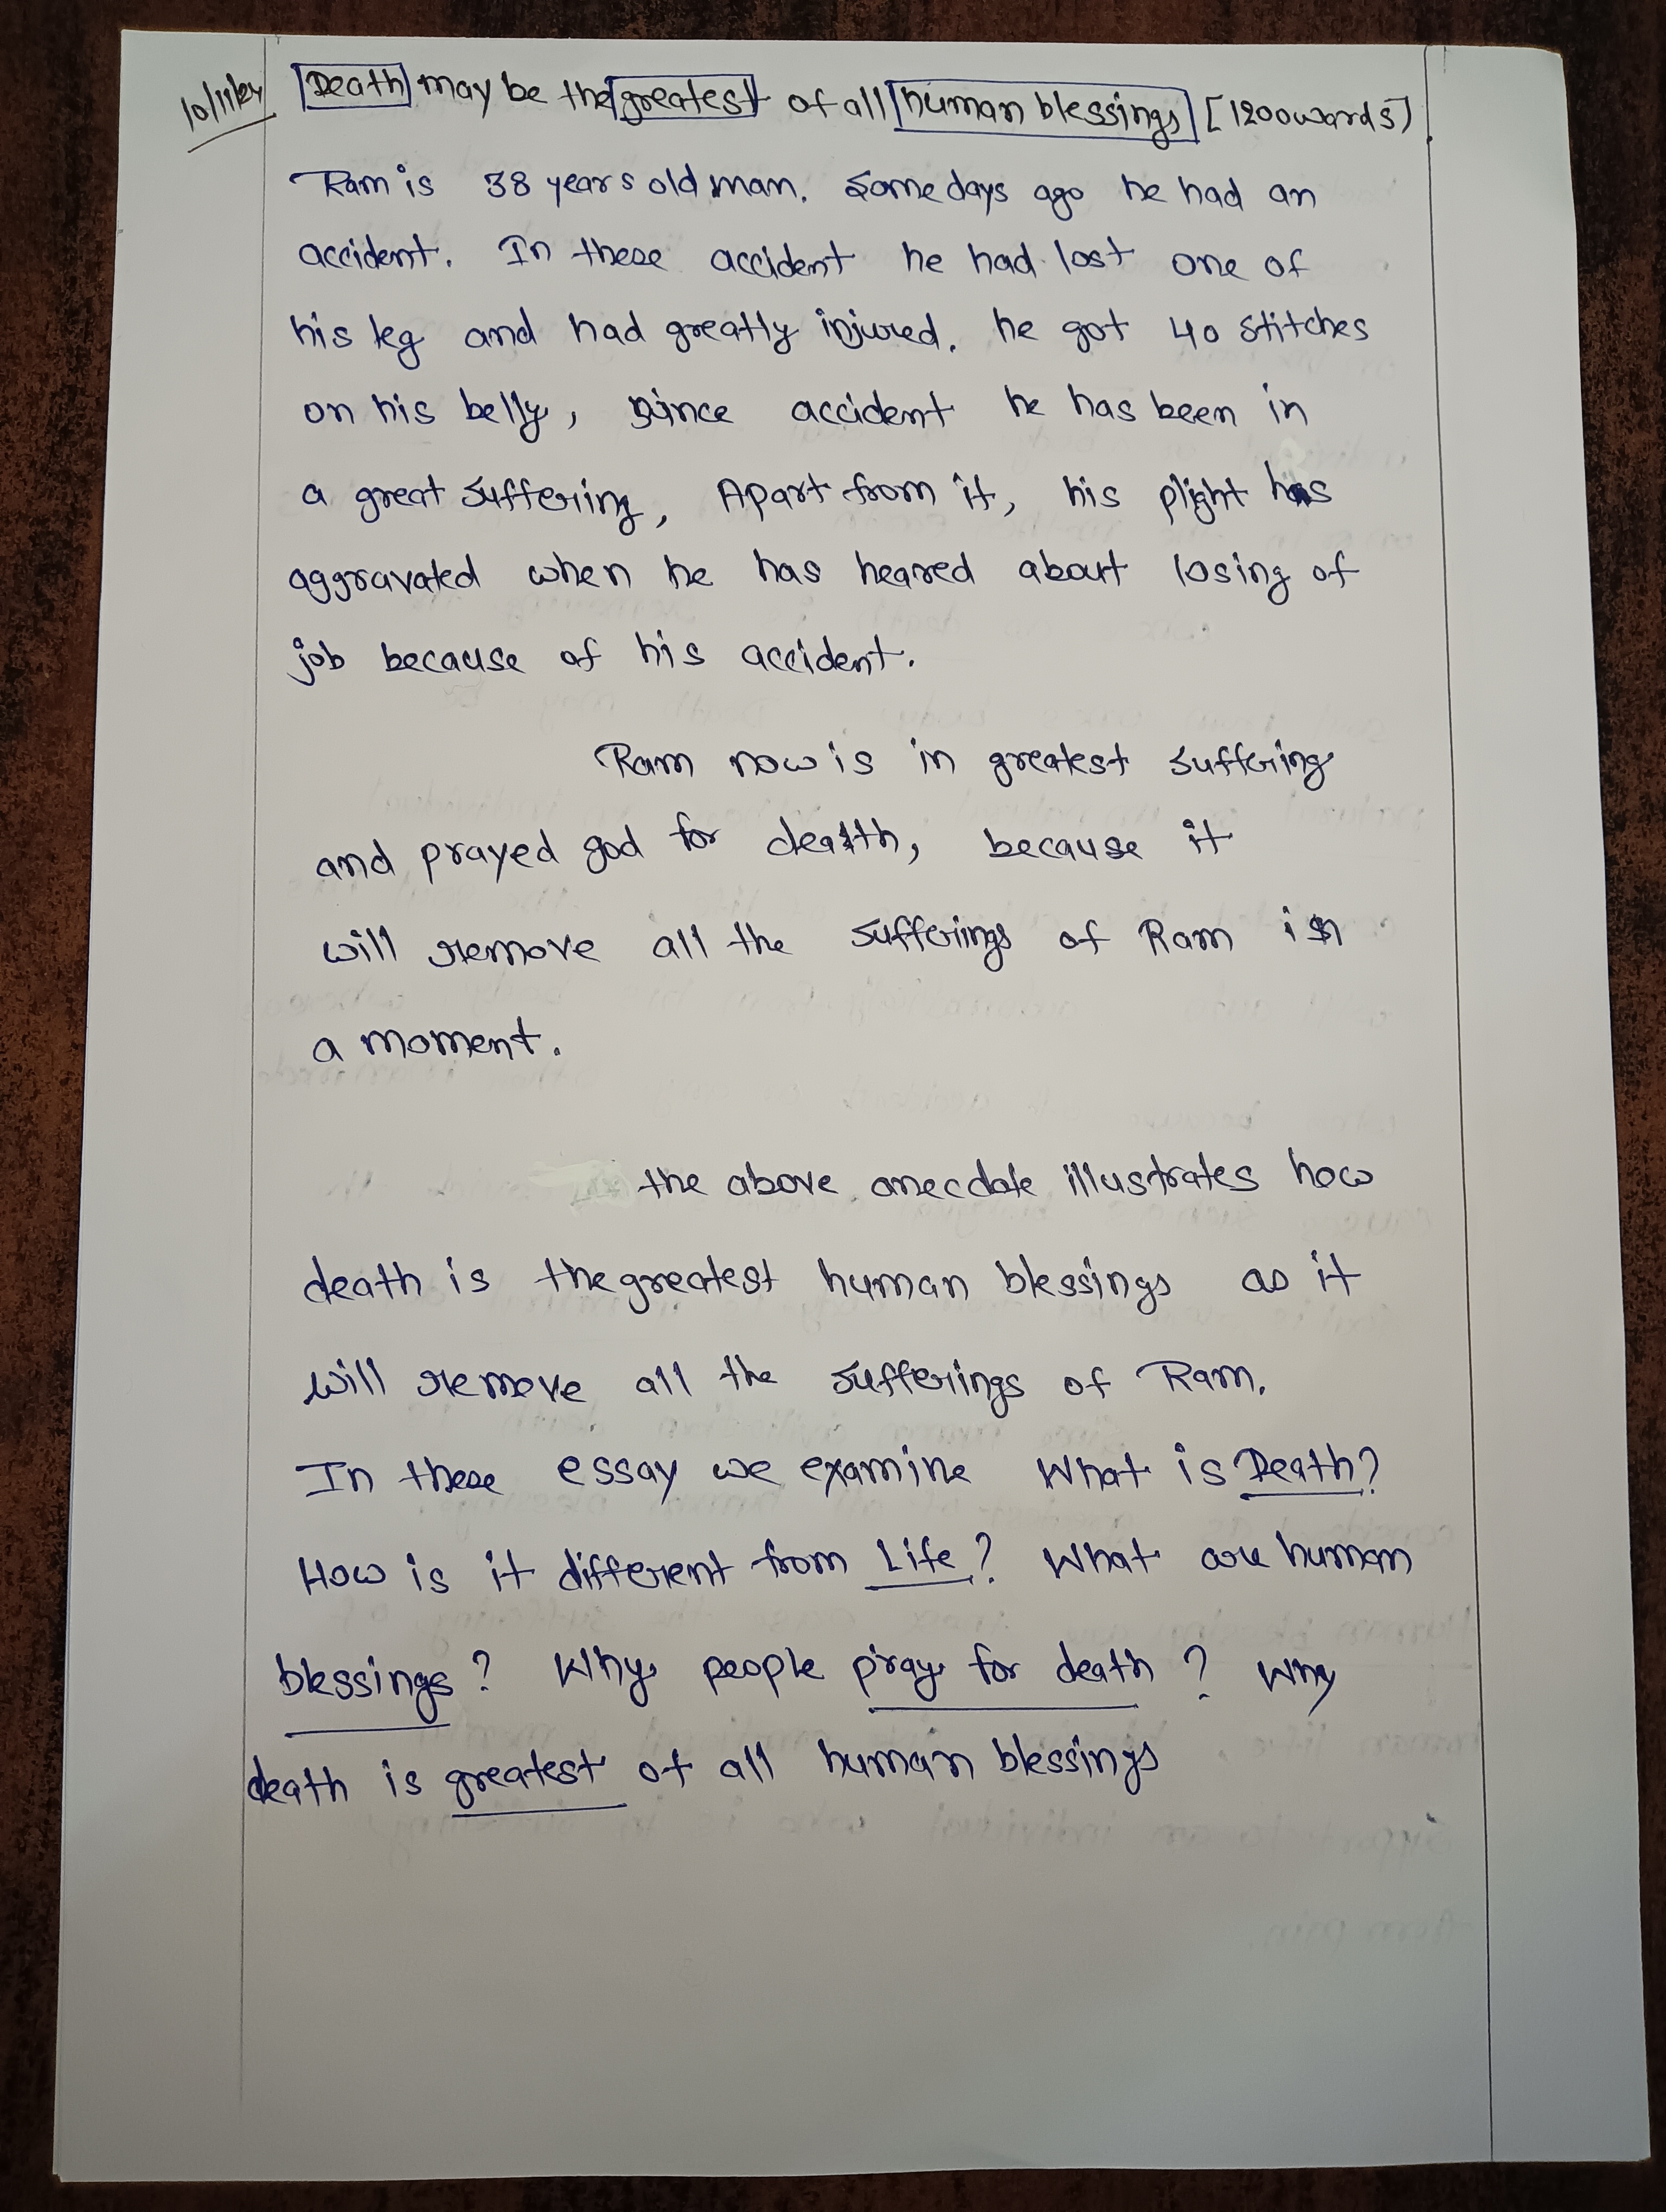 10/11/24 Death may be the greatest of all human blessings [1200 words]
Ram is 38 years old man. Some days ago he had an
accident. In these accident he had lost one of
his leg and had greatly injured. he got 40 stitches
on his belly, since accident he has been in
a great suffering, Apart from it, his plight has
aggravated when he has heared about losing of
job because of his accident.
Ram now is in greatest suffering
and prayed god for death, because it
will remove all the sufferings of Ram in
a moment.
the above anecdote illustrates how
death is the greatest human blessings as it
will remove all the sufferings of Ram.
In these essay we examine What is Death?
How is it different from Life? What are human
blessings? Why people pray for death? Why
death is greatest of all human blessings